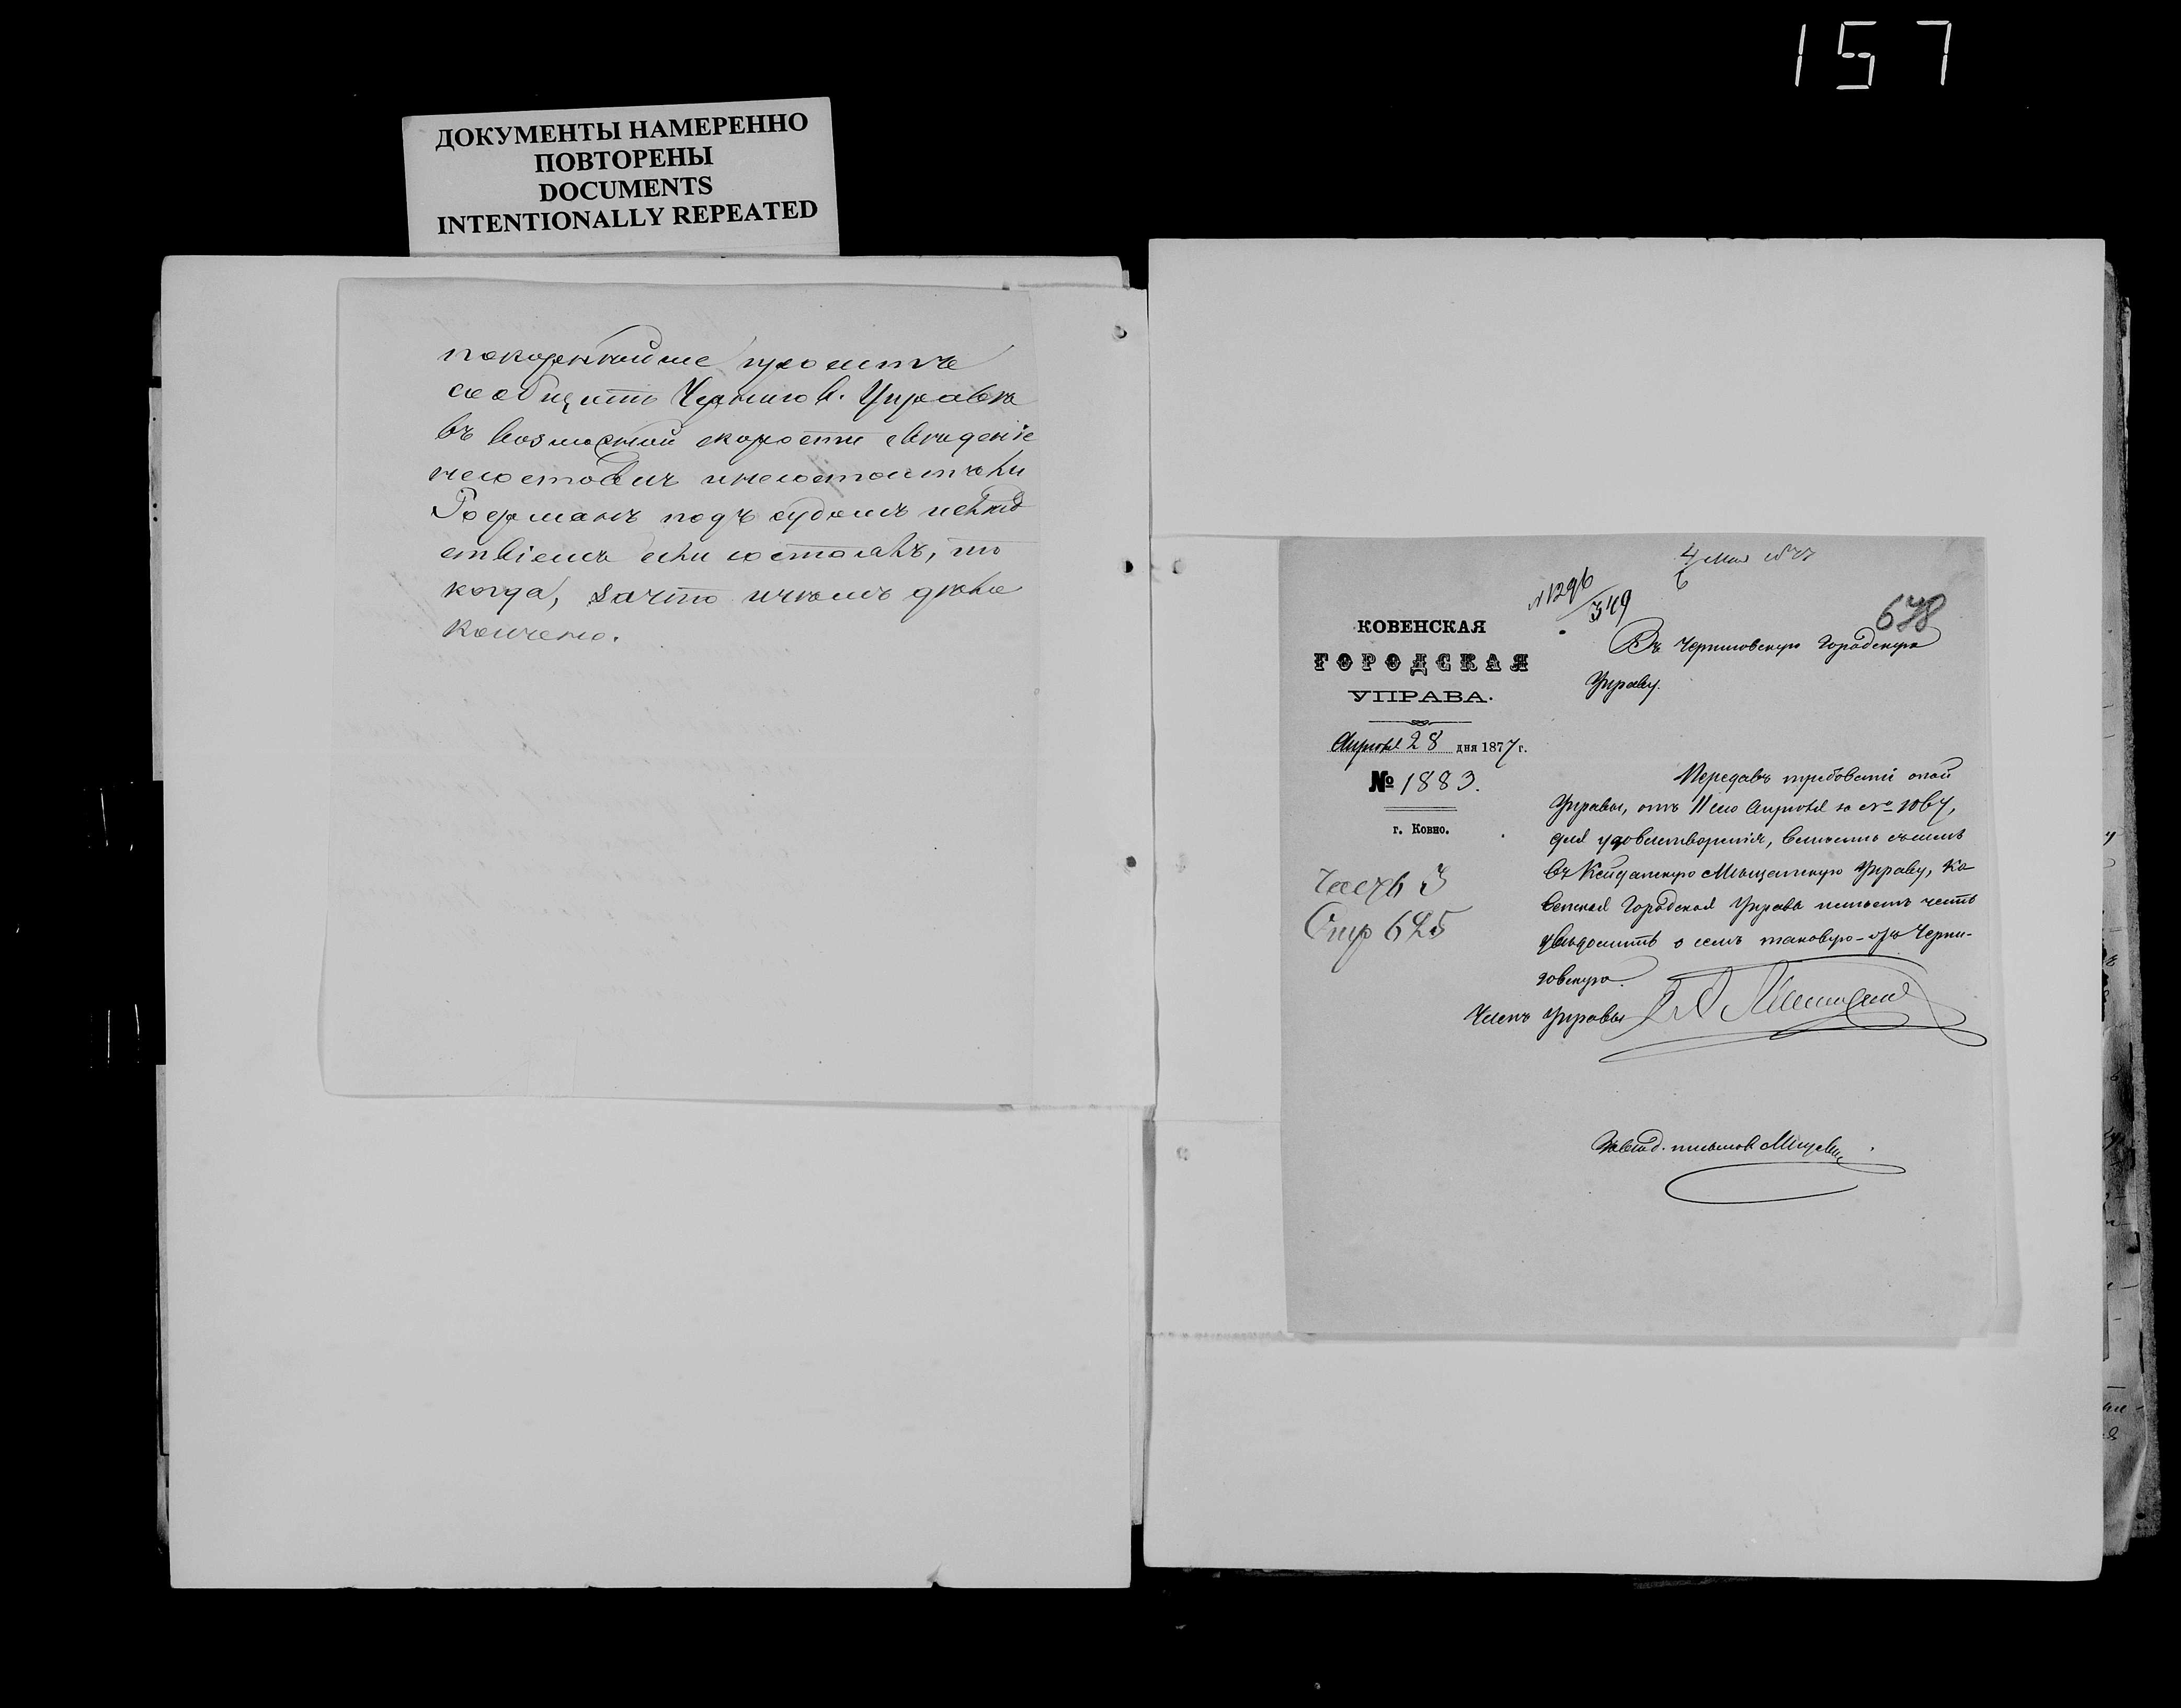 157
ДОКУМЕНТЫ НАМЕРЕННО
ПОВТОРЕНЫ
DOCUMENTS
INTENTIONALLY REPEATED
покорнѣйше проситъ
сообщить Чернигов. Управѣ
въ возможной скорости свѣдѣніе
несостоялъ и несостоитъ ли
подъ судомъ и слѣд
ствіемъ если состоялъ, то
когда, за что и чѣмъ дѣло
кончено.
4 Мая 1877
6
№1296
349
678
КОВЕНСКАЯ
ГОРОДСКАЯ
УПРАВА.
Апрѣля 28 дня 1877 г.
№ 1883.
г. Ковно.
Часть 3
Стр 625
Въ Черниговскую Городскую
Управу.
Передавъ требованіе оной
Управы, отъ 11сего Апрѣля за № 1067,
для удовлетворенія, вмѣстѣ съ симъ
въ Кейданскую Мѣщанскую Управу, Ко
венская Городская Управа имѣетъ честь
увѣдомить о семъ таковую-жъ Черни-
говскую.
Членъ Управы
Завѣд. письмов